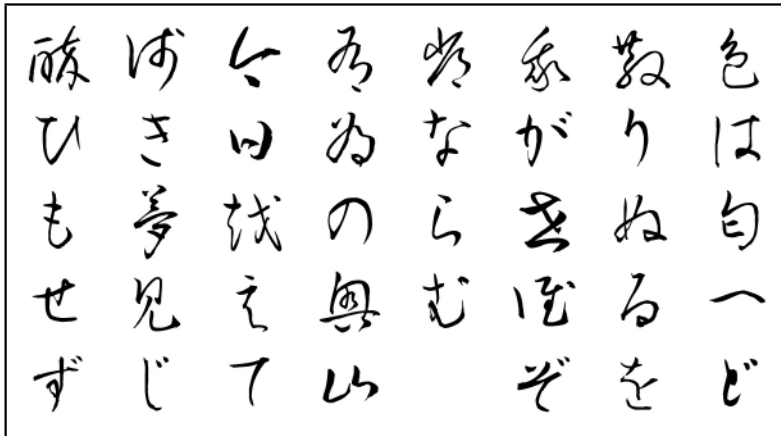 色は匂へど
散りぬるを
我が世誰ぞ
常ならむ
有為の奥山
今日越えて
浅き夢見じ
酔ひもせず